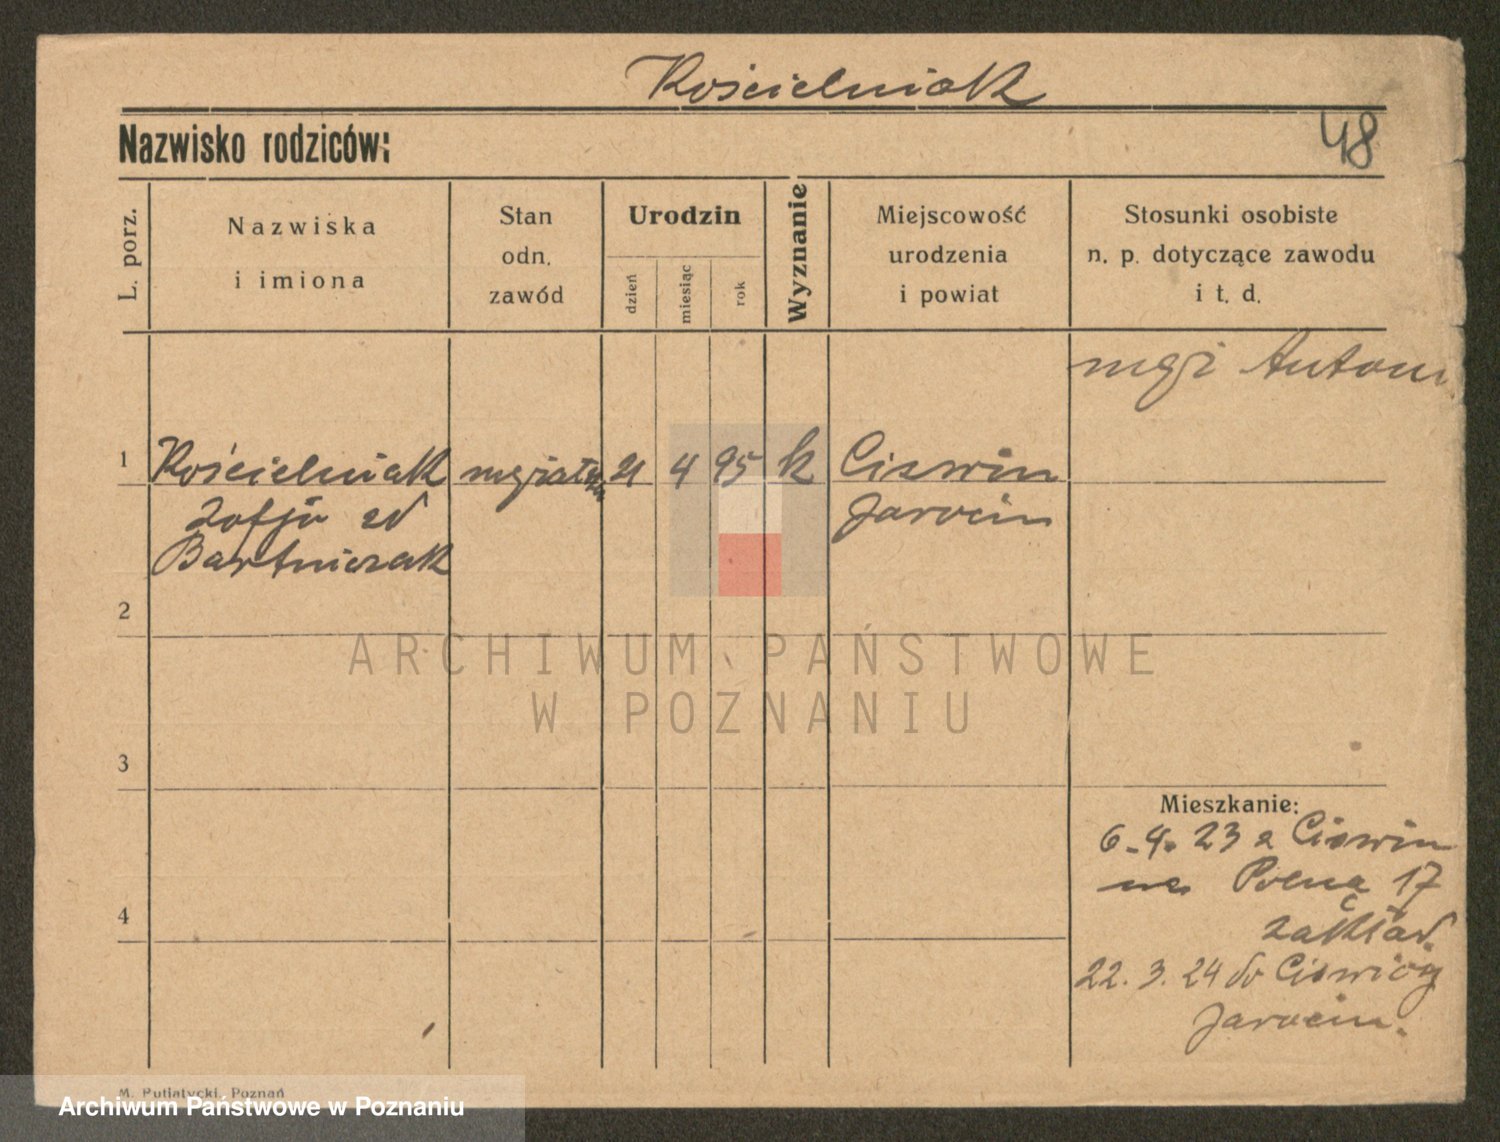 Kościelniak
48
Nazwisko rodziców:
L. porz.
Nazwiska
i imiona
Stan
odn.
zawód
Urodzin
dzień
miesiąc
rok
Wyznanie
Miejscowość
urodzenia
i powiat
Stosunki osobiste
n. p. dotyczące zawodu
i t. d.
mąż Antoni
1 Kościelniak mężatka 21 4 95 k Ciswin
Zofja zd Jarocin
Bartniczak
2
3
4
Mieszkanie:
6. 4. 23 z Ciswin
na Polną 17
zakład.
22. 3. 24 do Ciswicy
Jarocin.
ARCHIWUM PAŃSTWOWE
W POZNANIU
M. Putiatycki, Poznań
Archiwum Państwowe w Poznaniu